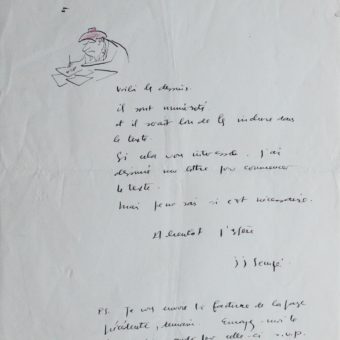 5
Voilà les dessins.
il sont numéroté
et il serait bon de les inclure dans
le texte.
Si cela vous intéresse. J'ai
dessiné une lettre pour commencer
le texte.
mais je ne sais si c'est nécessaire.
A bientôt j'espère
JJ Sempé.
PS. Je vous envoie la facture de la page
précédente, demain
par celle-ci s.v.p.